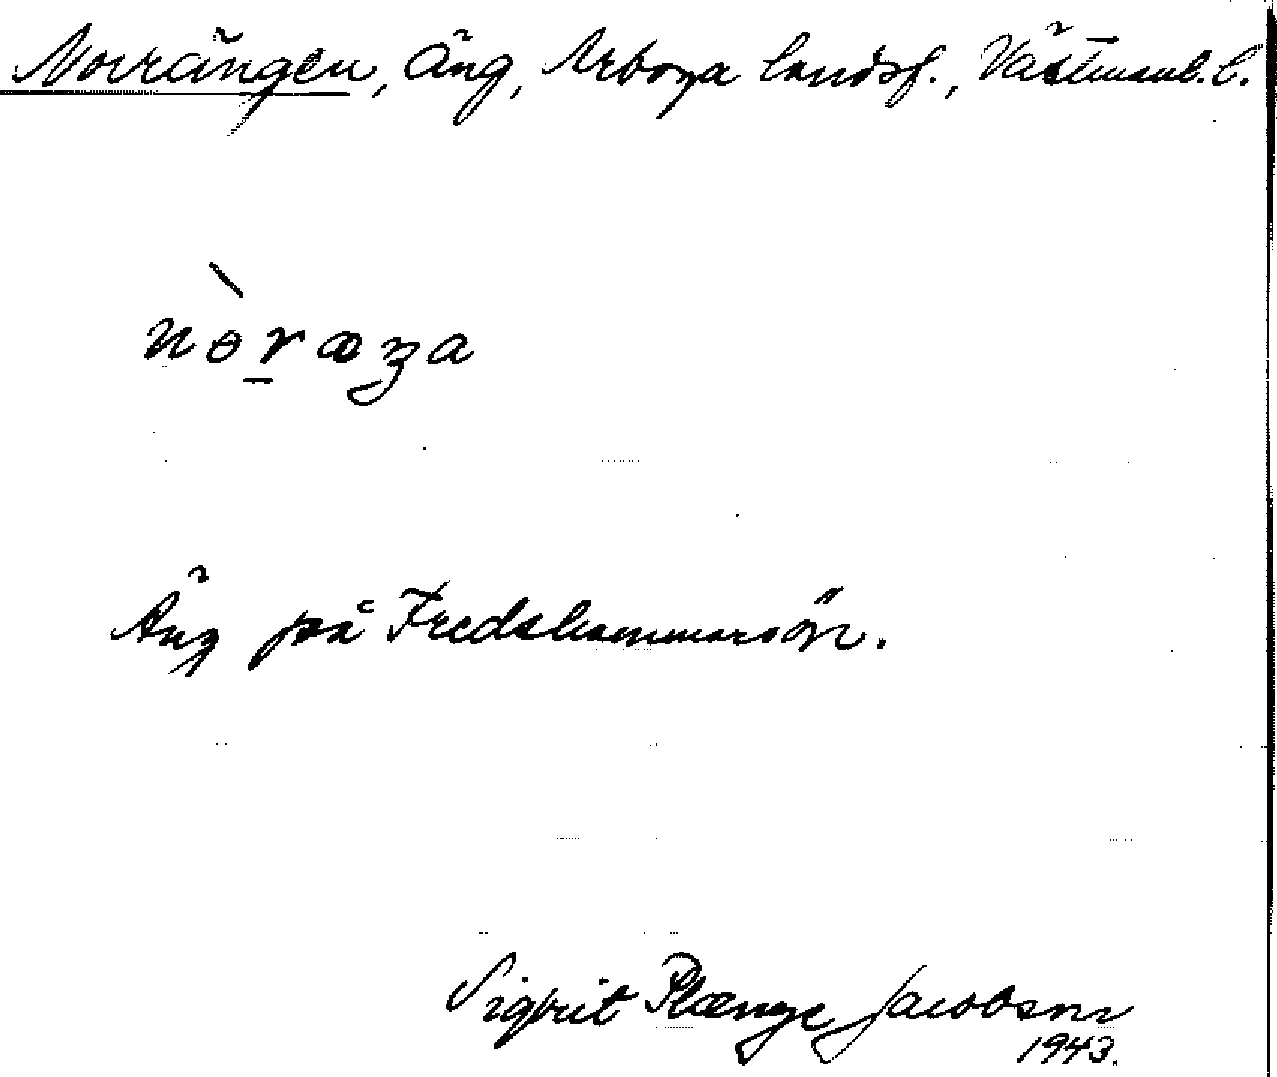 Norrängen, Äng, Arboga landsf., Västmanl. l.
nòræŋa
Äng på Fredshammarsön.
Sigbrit Plænge Jacobson
1943.